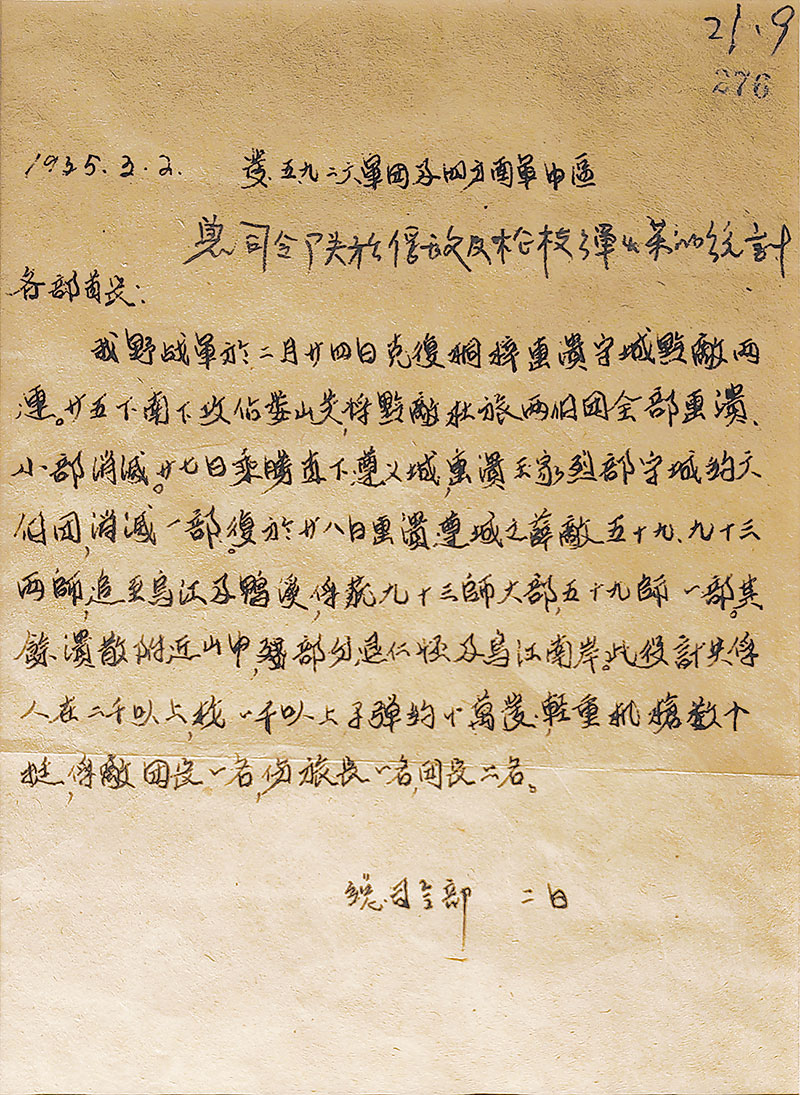 21.9
276
1935.3.2. 發五九二六軍団及四方面軍中區
總司令部关於俘敌及枪枝弹药的統計
各部首長：
我野战軍於二月廿四日克復桐梓重潰守城黔敵两
連。廿五下南下攻佔娄山关，将黔敵杜旅两個団全部重潰、
小部消滅。廿七日乘勝直下遵义城，重潰王家烈部守城约六
個団，消滅一部。復於廿八日重潰遵城之薛敵五十九、九十三
两師，追至烏江及鴨溪，俘获九十三師大部，五十九師一部。其
餘潰散附近山中，殘部分退仁怀及烏江南岸。此役計共俘
人在二千以上，枪一千以上子弹约十萬發，軽重机槍数十
挺，俘敵団長一名，伤旅長一名，団長二名。
總司令部 二日